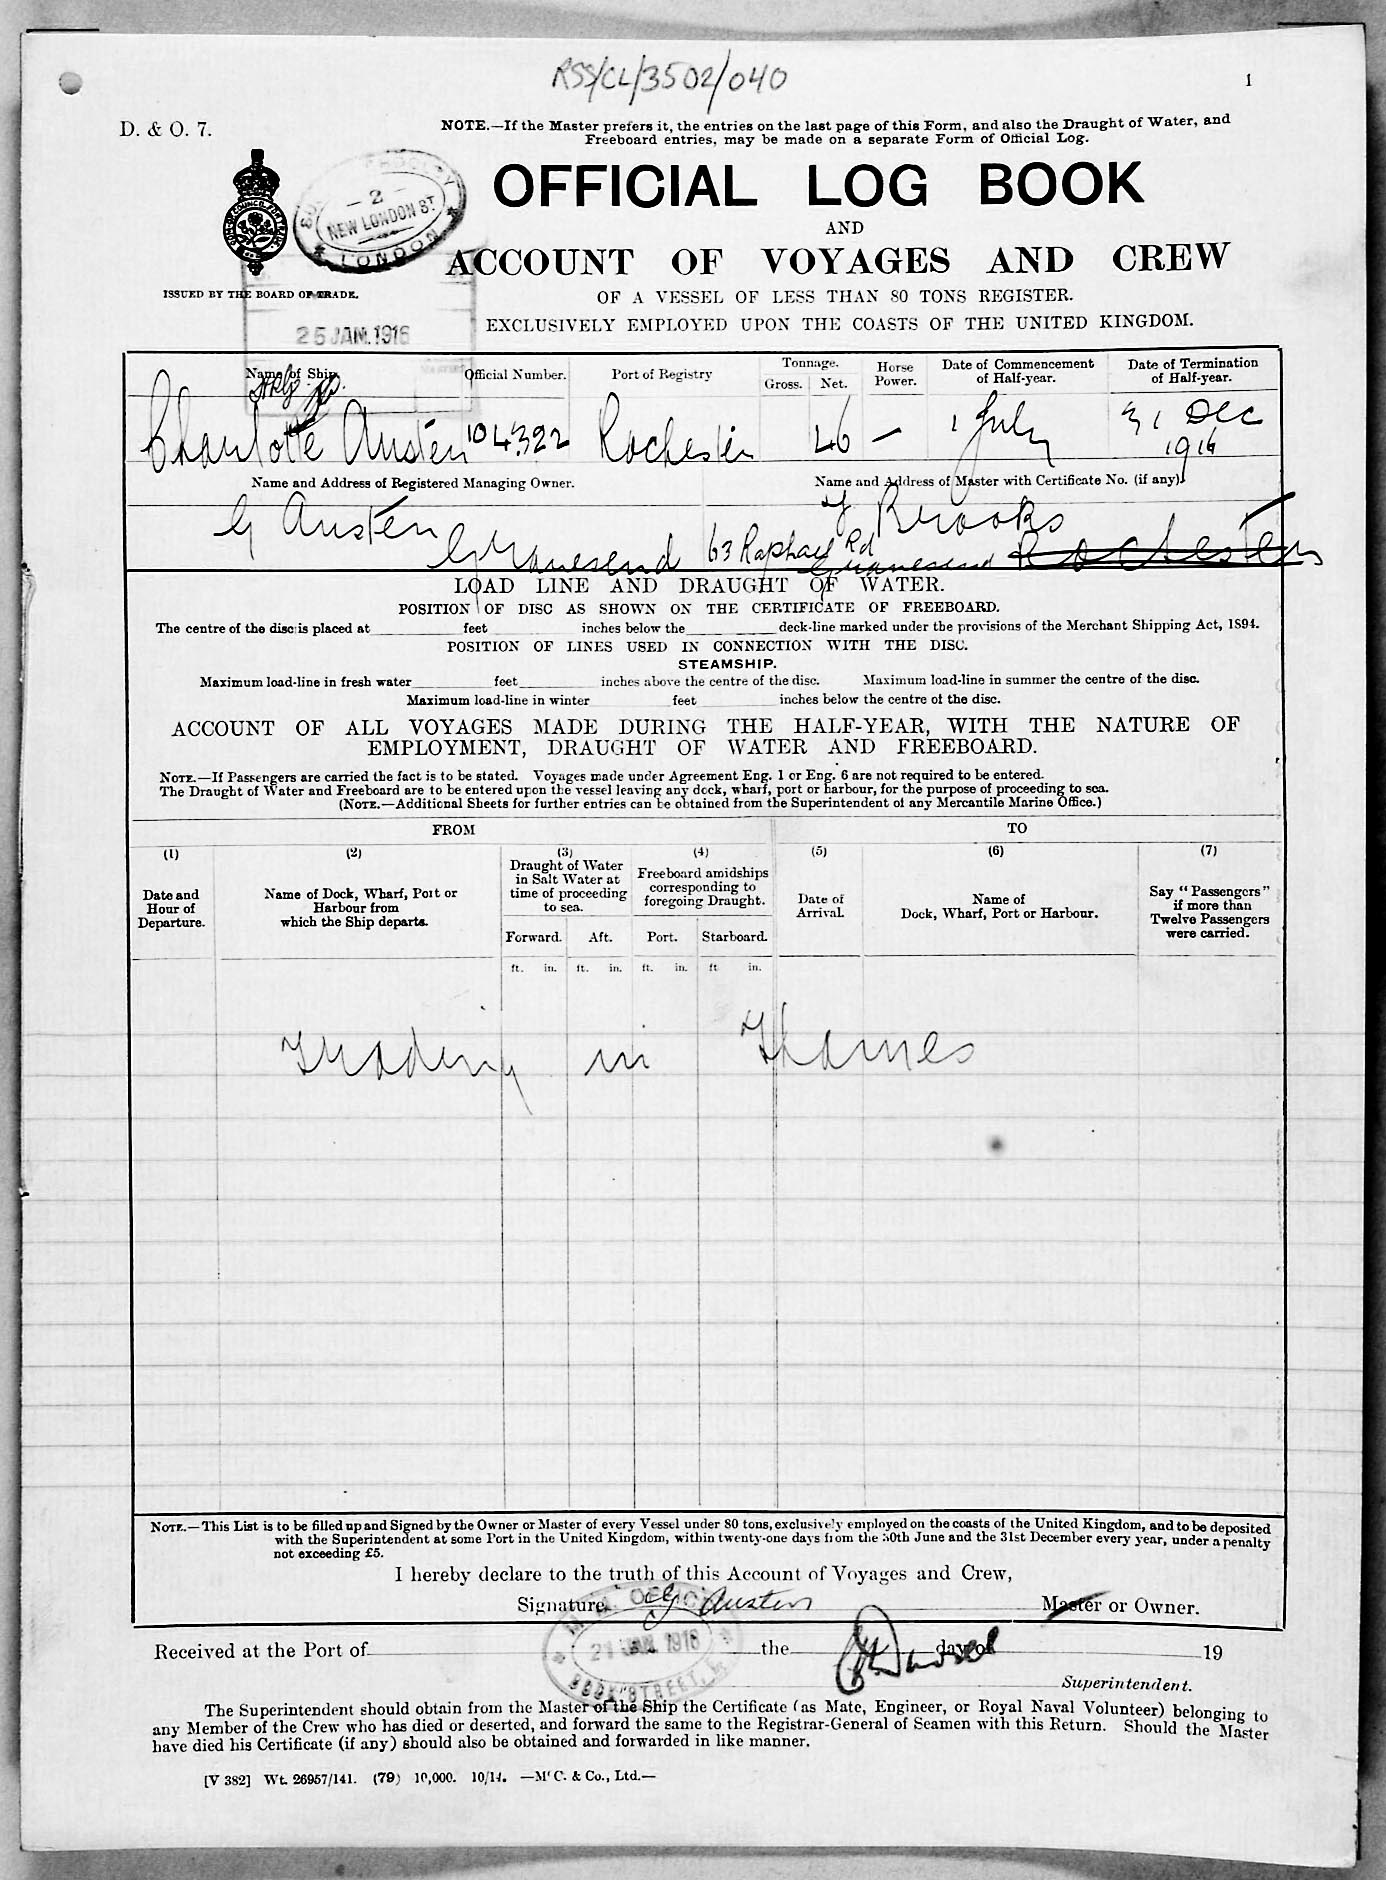 RSS/CL/3502/040
1
D. & O. 7.
NOTE.—If the Master prefers it, the entries on the last page of this Form, and also the Draught of Water, and
Freeboard entries, may be made on a separate Form of Official Log.
2
NEW LONDON ST
LONDON
OFFICIAL LOG BOOK
AND
ACCOUNT OF VOYAGES AND CREW
ISSUED BY THE BOARD OF TRADE.
OF A VESSEL OF LESS THAN 80 TONS REGISTER.
EXCLUSIVELY EMPLOYED UPON THE COASTS OF THE UNITED KINGDOM.
25 JAN. 1916
Name of Ship. Official Number. Port of Registry Tonnage. Gross. Net. Horse Power. Date of Commencement of Half-year. Date of Termination of Half-year.
Charlotte Austen 104322 Rochester 46 — 1 July 31 Dec
1916
Name and Address of Registered Managing Owner. Name and Address of Master with Certificate No. (if any).
G Austen Brooks
Gravesend 63 Raphael Rd Gravesend Rochester
LOAD LINE AND DRAUGHT OF WATER.
POSITION OF DISC AS SHOWN ON THE CERTIFICATE OF FREEBOARD.
The centre of the disc is placed at feet inches below the deck-line marked under the provisions of the Merchant Shipping Act, 1894.
POSITION OF LINES USED IN CONNECTION WITH THE DISC.
STEAMSHIP.
Maximum load-line in fresh water feet inches above the centre of the disc. Maximum load-line in summer the centre of the disc.
Maximum load-line in winter feet inches below the centre of the disc.
ACCOUNT OF ALL VOYAGES MADE DURING THE HALF-YEAR, WITH THE NATURE OF
EMPLOYMENT, DRAUGHT OF WATER AND FREEBOARD.
NOTE.—If Passengers are carried the fact is to be stated. Voyages made under Agreement Eng. 1 or Eng. 6 are not required to be entered.
The Draught of Water and Freeboard are to be entered upon the vessel leaving any dock, wharf, port or harbour, for the purpose of proceeding to sea.
(NOTE.—Additional Sheets for further entries can be obtained from the Superintendent of any Mercantile Marine Office.)
FROM TO
(1) (2) (3) (4) (5) (6) (7)
Date and Hour of Departure.
Name of Dock, Wharf, Port or Harbour from which the Ship departs.
Draught of Water in Salt Water at time of proceeding to sea.
Freeboard amidships corresponding to foregoing Draught.
Date of Arrival.
Name of Dock, Wharf, Port or Harbour.
Say "Passengers" if more than Twelve Passengers were carried.
Forward. Aft. Port. Starboard.
ft. in. ft. in. ft. in. ft in.
Trading in Thames
NOTE.—This List is to be filled up and Signed by the Owner or Master of every Vessel under 80 tons, exclusively employed on the coasts of the United Kingdom, and to be deposited
with the Superintendent at some Port in the United Kingdom, within twenty-one days from the 30th June and the 31st December every year, under a penalty
not exceeding £5.
I hereby declare to the truth of this Account of Voyages and Crew,
Signature G Austen Master or Owner.
21 JAN. 1916
Received at the Port of the day of 19
Superintendent.
The Superintendent should obtain from the Master of the Ship the Certificate (as Mate, Engineer, or Royal Naval Volunteer) belonging to
any Member of the Crew who has died or deserted, and forward the same to the Registrar-General of Seamen with this Return. Should the Master
have died his Certificate (if any) should also be obtained and forwarded in like manner.
[V 382] Wt. 26957/141. (79) 10,000. 10/14. —McC. & Co., Ltd.—